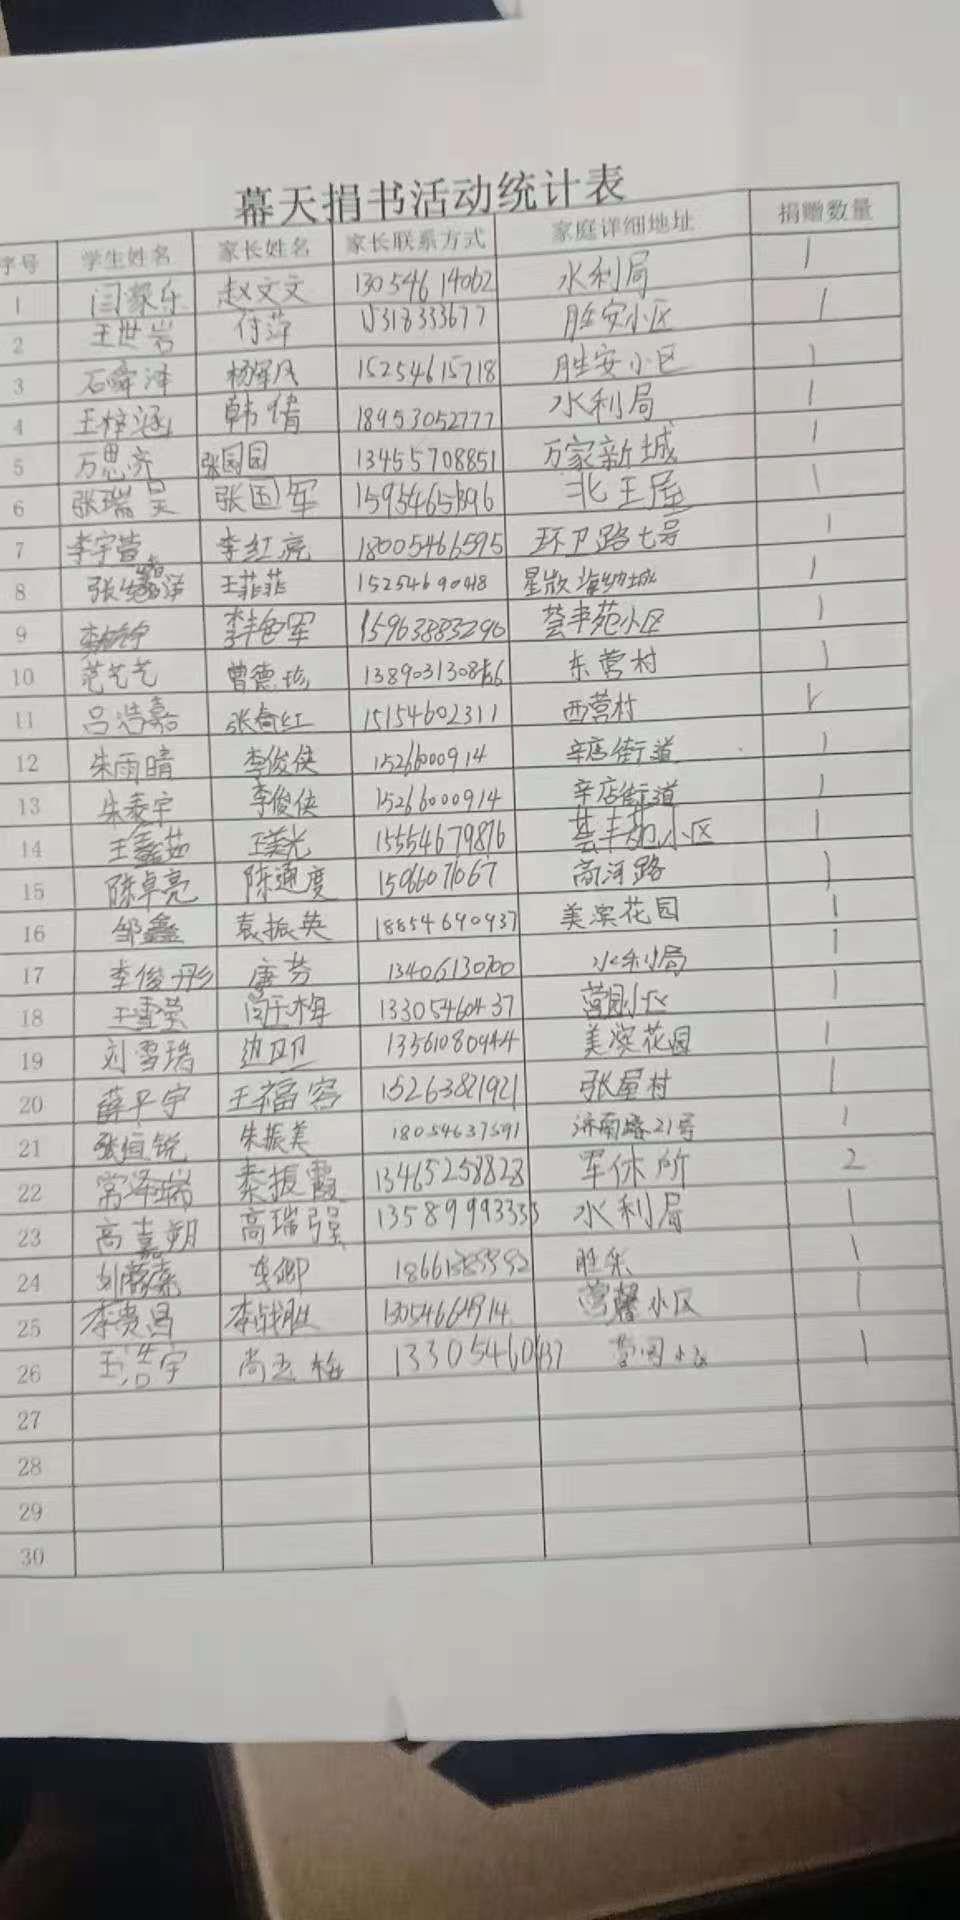 幕天捐书活动统计表
序号 学生姓名 家长姓名 家长联系方式 家庭详细地址 捐赠数量
1 闫黎乐 赵文文 13054614062 水利局 1
2 王世岩 付萍 15318333677 胜安小区 1
3 石舜泽 杨军凤 15254615718 胜安小区 1
4 王梓涵 韩倩 18953052777 水利局 1
5 万思齐 张园园 13455708851 万家新城 1
6 张瑞昊 张国军 15954651396 北王屋 1
7 李宇萱 李红亮 18005466595 环卫路七号 1
8 王菲菲 15254690418 1
9 15963883290 荟丰苑小区 1
10 范艺艺 曾德珍 东营村 1
11 吕浩嘉 张春红 15154602311 西营村 1
12 朱雨晴 李俊侠 15266000914 辛店街道 1
13 李俊侠 15266000914 辛店街道 1
14 王鑫茹 王美光 15554679876 荟丰苑小区 1
15 陈卓亮 陈通度 高河路 1
16 邹鑫 袁振英 18854690937 美滨花园 1
17 李俊彤 唐芳 水利局 1
18 王雪莹 13305460437 1
19 刘雪瑞 边卫卫 13561080944 美滨花园 1
20 薛平宇 王福容 15263821921 张屋村 1
21 张恒锐 朱振美 18054637591 济南路21号 1
22 常泽瑞 秦振霞 13465258828 军休所 2
23 高嘉朔 高瑞强 13589993335 水利局 1
24 胜东 1
25 李贵昌 李战胜 营馨小区 1
26 王浩宇 尚玉梅 13305460437 1
27
28
29
30